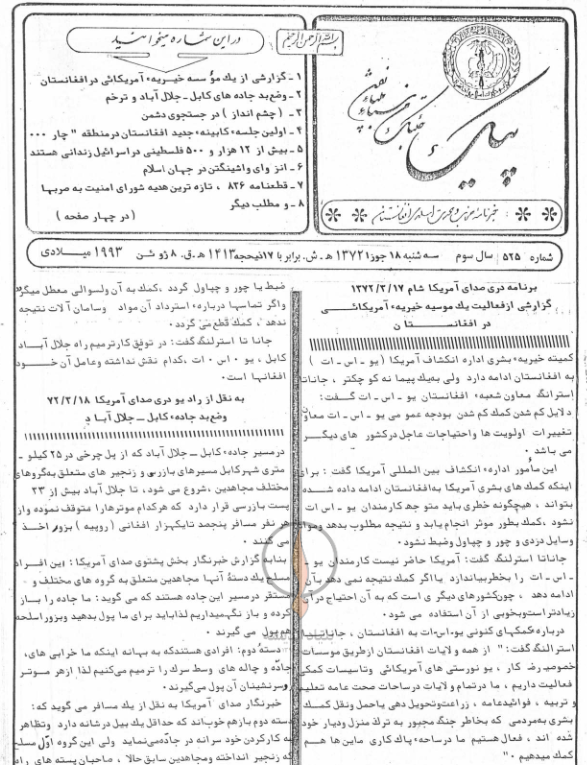 بسم الله الرحمن الرحیم
در این شماره میخوانید
۱ - گزارشی از یك مؤسسه خیریهء آمریکائی در افغانستان
۲ - وضع بد جاده های کابل - جلال آباد و ترخم
۳ - ( چشم انداز ) در جستجوی دشمن
۴ - اولین جلسهء کابینهء جدید افغانستان در منطقه " چار ۰۰۰
۵ - بیش از ۱۲ هزار و ۵۰۰ فلسطینی در اسرائیل زندانی هستند
۶ - انز وای واشینگتن در جهان اسلام
۷ - قطعنامه ۸۳۶ ، تازه ترین هدیه شورای امنیت به صربها
۸ - و مطلب دیگر
( در چهار صفحه )
پیک
شماره ۵۲۵ سال سوم سه شنبه ۱۸ جوزا ۱۳۷۲ هـ.ش. برابر با ۱۷ ذیحجه ۱۴۱۳ هـ.ق. ۸ ژوئن ۱۹۹۳ میلادی
برنامه دری صدای آمریکا شام ۱۳۷۲/۳/۱۷
گزارشی از فعالیت یك موسیه خیریهء آمریکائی
در افغانستا ن
کمیته خیریهء بشری اداره انکشاف آمریکا ( یو - اس - ات )
به افغانستان ادامه دارد ولی به یك پیما نه کو چکتر ، جاناتا
إسترلنگ معاون شعبهء افغانستان یو - اس - ات گفت:
د لایل کم شدن کمك کم شدن بودجه عمو می یو - اس - ات معاو
تغییرات اولویت ها واحتیاجات عاجل درکشور های دیگر
می باشد .
این مأمور ادارهء انکشاف بین المللی آمریکا گفت : برای
اینکه کمك های بشری آمریکا به افغانستان ادامه داده شده
بتواند ، هیچگونه خطری باید متو جه کارمندان یو - اس - ات
نشود ،کمك بطور موثر انجام یابد و نتیجه مطلوب بدهد وموا
وسایل دزدی و چور و چپاول وضبط نشود .
جاناتا استرلنگ گفت: آمریکا حاضر نیست کارمندان یو -
- اس - ات را بخطربیاندازد یااگر کمك نتیجه نمی دهد بآن
ادامه دهد ، چون کشورهای دیگر ی است که به آن احتیاج دران
زیادتراست وبخوبی از آن استفاده می شود .
درباره کمکهای کنونی یو-اس-ات به افغانستان ، جاناتا
استرالنگ گفت: " از همه و لایات افغانستان ازطریق موسسات
خصوصی رضا کار ، یو نورستی های آمریکائی وتاسیسات کمکی
فعالیت داریم ، ما درتمام ولایات درساحات صحت عامه تعلیم
و تربیه ، فوائدعامه ، زراعت وتحویل دهی یاحمل ونقل کمك
بشری به مردمی که بخاطر جنگ مجبور به ترك منزل ودیار خود
شده اند ، فعال هستیم ما درساحهء پاك کاری ماین ها هم
کمك میدهیم ."
ضبط یا چور و چپاول گردد ،کمك به آن ولسوالی معطل میگردد
واگر تماسها دربارهء استرداد آن مواد وسامان آلات نتیجه
ندهد ، کمك قطع می گردد .
جانا تا استرلنگ گفت: در توفق کار ترمیم راه جلال آباد
کابل ، یو ۰ اس ۰ ات ،کدام نقش نداشته وعامل آن خود
افغانها است .
به نقل از راد یو دری صدای آمریکا ۷۲/۳/۱۸
وضع بد جادهء کابل - جلال آبا د
درمسیر جادهء کابل - جلال آباد که از پل چرخی در ۲۵ کیلو -
متری شهرکابل مسیرهای بازرسی و زنجیر های متعلق به گروهای
مختلف مجاهدین ،شروع می شود ، تا جلال آباد بیش از ۲۳
پست بازرسی قرار دارد که هرکدام موترها را متوقف نموده واز
هر نفر مسافر پنجصد تایکهزار افغانی ( روپیه ) بزور اخذ
می کنند .
بنابه گزارش خبرنگار بخش پشتوی صدای آمریکا : این افراد
مسلح یك دستهٔ آنها مجاهدین متعلق به گروه های مختلف و
مستقر درمسیر این جاده هستند که می گوید : ما جاده را باز
کرده و باز نگهمیداریم لذا باید برای ما پول بدهید وبزور اسلحه
هم پول می گیرند .
دستهٔ دوم: افرادی هستند که به بهانه اینکه ما خرابی های ،
جاده و چاله های وسط سرك را ترمیم می کنیم لذا از هر موتر
وسرنشینان آن پول می گیرند .
خبرنگار صدای آمریکا به نقل از یك مسافر می گوید که:
دسته دوم بازهم خوب اند که حداقل یك بیل درشانه دارد وتظاهر
به کارکردن خود سرانه در جاده می نماید ولی این گروه اوّل مسلح
که زنجیر انداخته ومجاهدین سابق حالا ، صاحبان پسته های راه